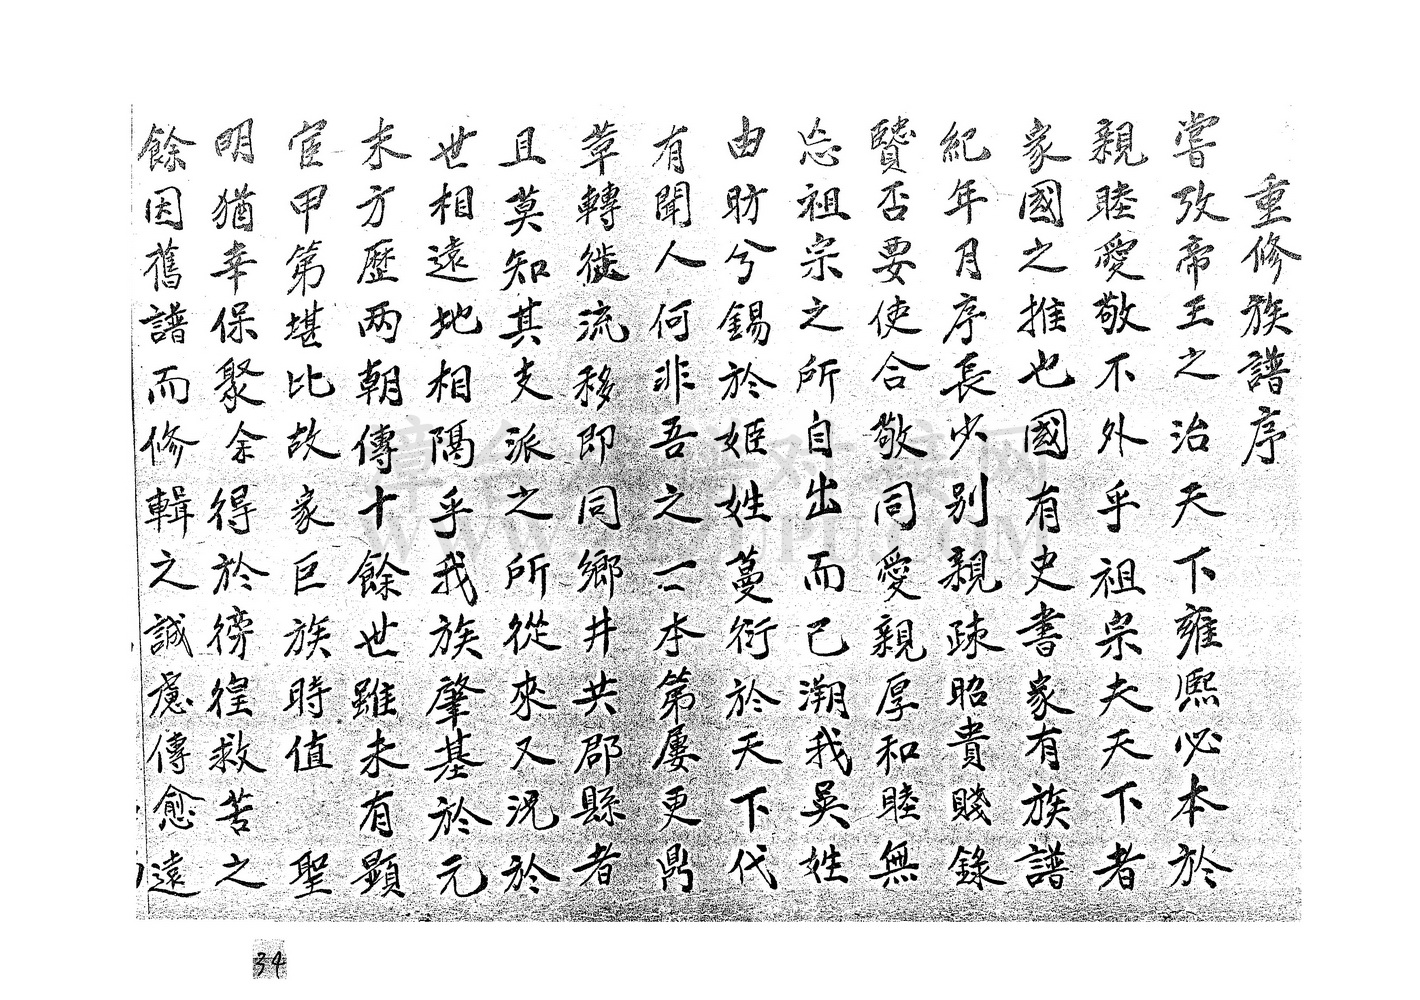 重修族譜序
嘗攷帝王之治天下雍熙必本於
親睦愛敬不外乎祖宗夫天下者
家國之推也國有史書家有族譜
紀年月序長少別親疎昭貴賤錄
賢否要使合敬同愛親厚和睦無
忘祖宗之所自出而已溯我吳姓
由昉兮錫於姬姓蔓衍於天下代
有聞人何非吾之一本第屢更鼎
草轉徙流移即同鄉井共郡縣者
且莫知其支派之所從來又況於
世相遠地相隔乎我族肇基於元
末方歷両朝傳十餘世雖未有顯
宦甲第堪比故家巨族時值 聖
明猶幸保聚余得於徬徨救苦之
餘因舊譜而修輯之誠慮傳愈遠
34
漳台族譜对接网
WWW.ZTZUPU.COM